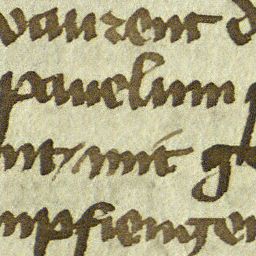 waurent d
pauelum
nt mit g
mpfiengen